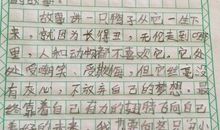 故事讲一只鸭子从它一生下
来,就因为长得丑,无论走到哪
里,人和动物都不喜欢它,它处
处受嘲笑,受欺侮,但它丝毫没
有灰心,不放弃自己的梦想,最
终靠着自己有力的翅膀飞向自己
美好的未来。我